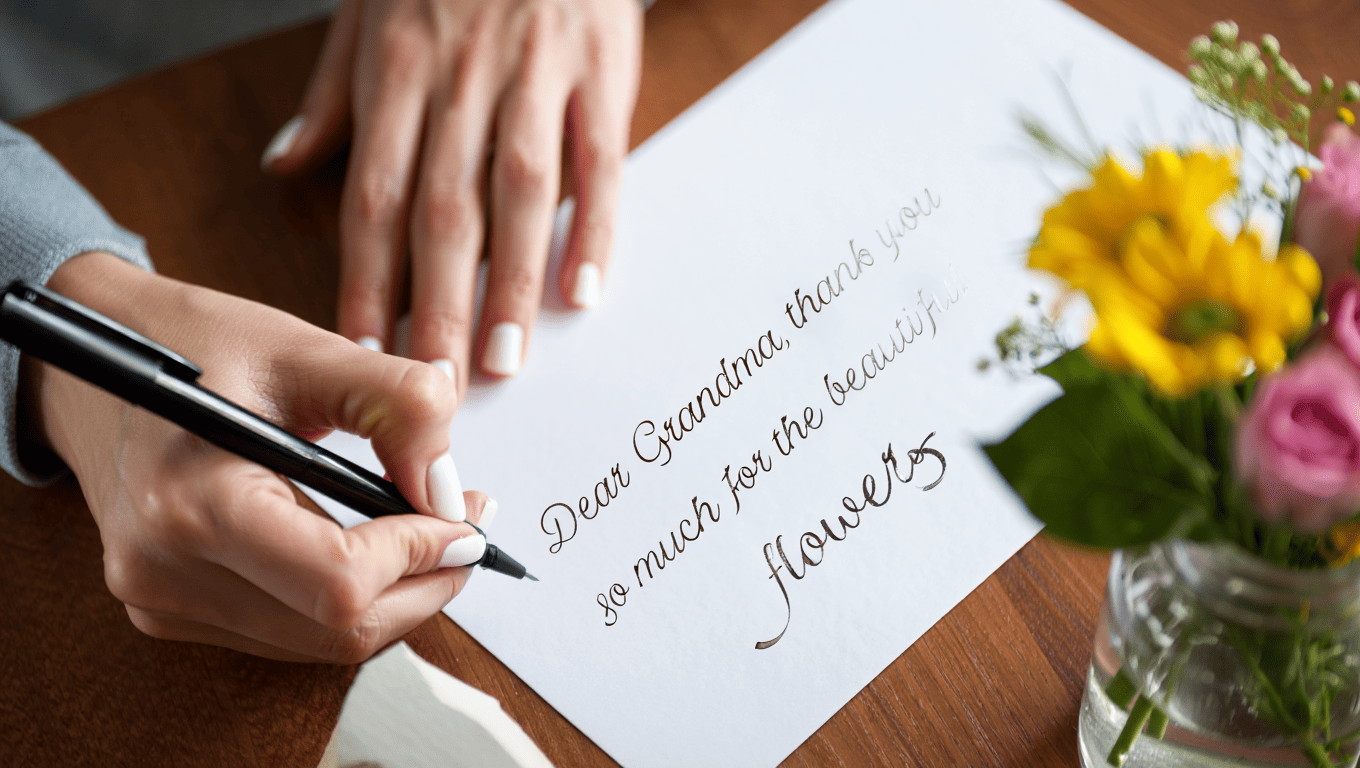 Dear Grandma, thank you
so much for the beautiful
flowers